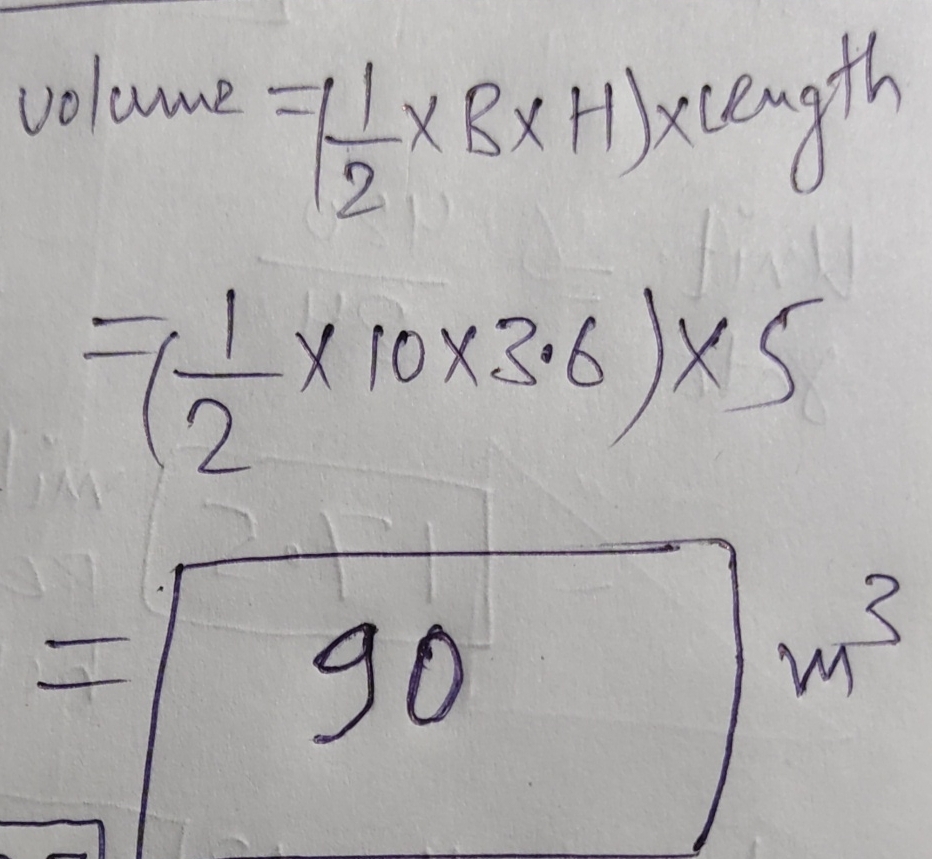 volume = (1/2 × B × H) × Length
= (1/2 × 10 × 3.6) × 5
= 90 m³